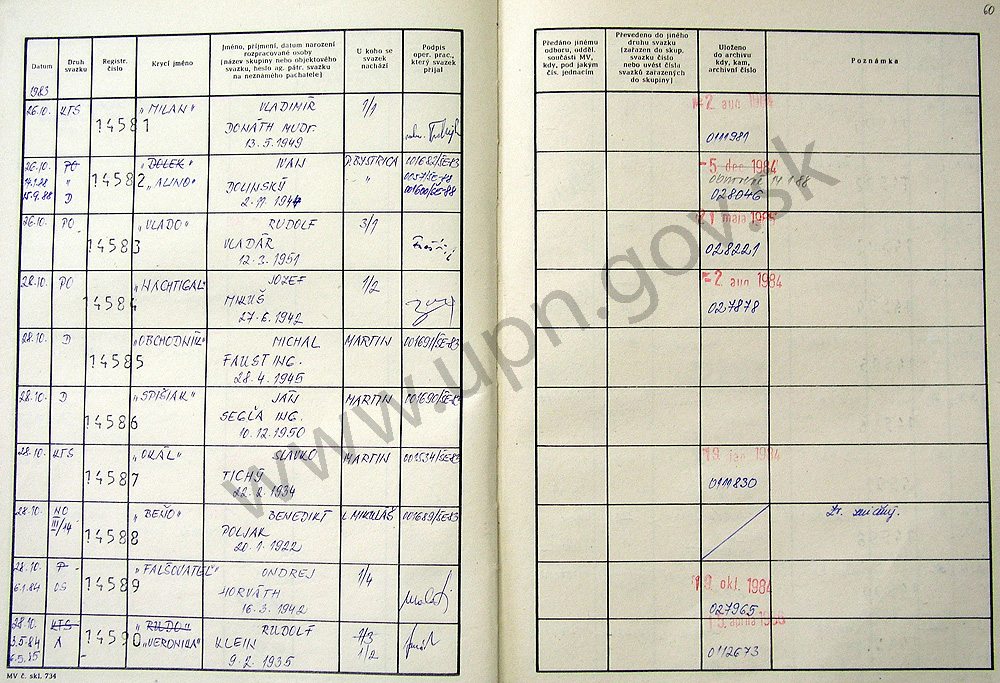 60
Datum
Druh svazku
Registr. číslo
Krycí jméno
Jméno, příjmení, datum narození
rozpracované osoby
(název skupiny nebo objektového
svazku, heslo ag. pátr. svazku
na neznámého pachatele)
U koho se
svazek
nachází
Podpis
oper. prac.,
který svazek
přijal
Předáno jinému
odboru, odděl.
součásti MV,
kdy, pod jakým
čís. jednacím
Převedeno do jiného
druhu svazku
(zařazen do skup.
svazku číslo
nebo uvést čísla
svazků zařazených
do skupiny)
Uloženo
do archivu
kdy, kam,
archivní číslo
Poznámka
1983
26.10. KTS 14581 "MILAN" VLADIMÍR 1/1
DONÁTH MUDr.
13.5.1949
-2. aug 1984
0111981
26.10. PO 14582 "BOLEK" IVAN P. BYSTRICA 001682/ŠE-83
" "ALINO" DOLINSKÝ "
D 2.11.1944 001600/ŠE-88
-5. dec 1984
14.1.88
028046
26.10. PO 14583 "VLADO" RUDOLF 3/1
VLADÁR
12.3.1951
21 mája 1985
028221
28.10. PO 14584 "NACHTIGAL" JOZEF 1/2
MIKUŠ
27.6.1942
-2. aug 1984
027878
28.10. D 14585 "OBCHODNÍK" MICHAL MARTIN 001691/ŠE-83
FAUST ING.
28.4.1945
28.10. D 14586 "SPIŠIAK" JÁN MARTIN 001690/ŠE-83
SEGĽA ING.
10.12.1950
28.10. KTS 14587 "OKÁL" SLAVKO MARTIN 001534/ŠE-83
TICHÝ
22.2.1934
19. jan 1984
0111830
28.10. NO 14588 "BEŇO" BENEDIKT L. MIKULÁŠ 001689/ŠE-83
III/14 POLJAK
20.1.1922
Zv. zničený.
28.10. P 14589 "FALŠOVATEĽ" ONDREJ 1/4
6.1.84 OS HORVÁTH
16.3.1942
19. okt. 1984
027965
28.10. KTS 14590 "RUDO" RUDOLF 1/3
3.5.84 A "VERONIKA" KLEIN 1/2
9.2.1935
0112673
MV č. skl. 734
www.upn.gov.sk